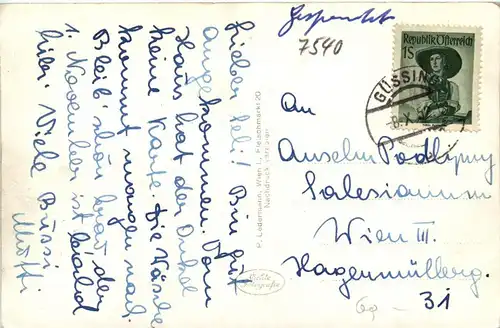 Lieber Seli! Bin gut
angekommen. Vom
Haus hat der Onkel
keine Karte. Die Wäsche
kommt morgen nach.
Bleib' schön brav der
1. November ist bald
hier. Viele Bussi
Mutti
P. Ledermann, Wien I., Fleischmarkt 20
Nachdruck verboten
Echte
Photographie
7540
Republik Österreich
1S
GÜSSING
An
Anselm Podlipny
Salesianum
Wien III.
Hagenmüllerg.
31